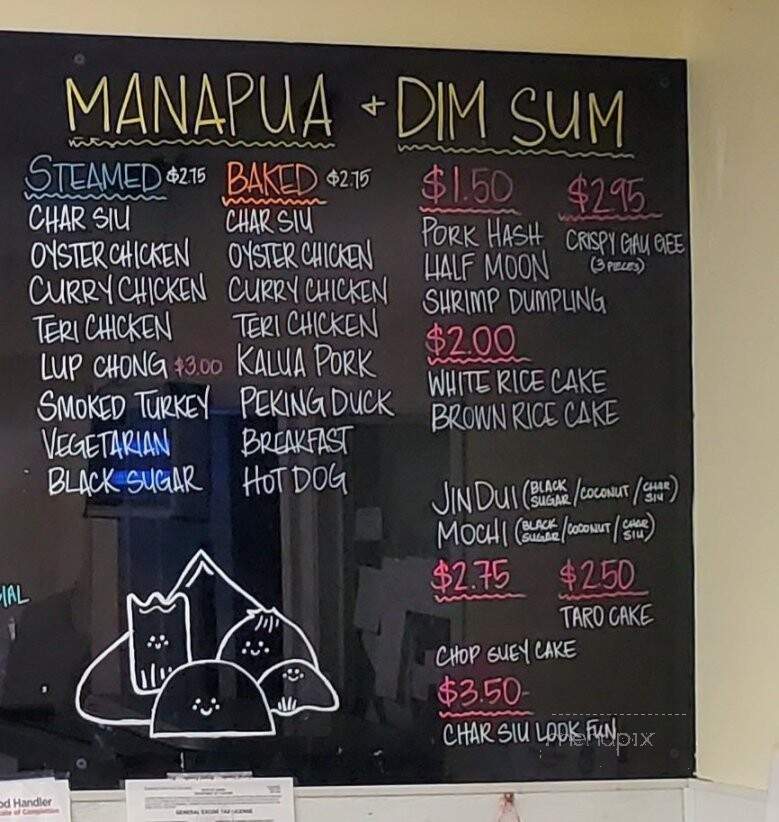 MANAPUA + DIM SUM
STEAMED $2.75
CHAR SIU
OYSTER CHICKEN
CURRY CHICKEN
TERI CHICKEN
LUP CHONG $3.00
SMOKED TURKEY
VEGETARIAN
BLACK SUGAR
BAKED $2.75
CHAR SIU
OYSTER CHICKEN
CURRY CHICKEN
TERI CHICKEN
KALUA PORK
PEKING DUCK
BREAKFAST
HOT DOG
$1.50
PORK HASH
HALF MOON
SHRIMP DUMPLING
$2.95
CRISPY GAU GEE
(3 PIECES)
$2.00
WHITE RICE CAKE
BROWN RICE CAKE
JIN DUI (BLACK SUGAR/COCONUT/CHAR SIU)
MOCHI (BLACK SUGAR/COCONUT/CHAR SIU)
$2.75
CHOP SUEY CAKE
$2.50
TARO CAKE
$3.50
CHAR SIU LOOK FUN
menupix
IAL
od Handler
GENERAL EXCISE TAX LICENSE